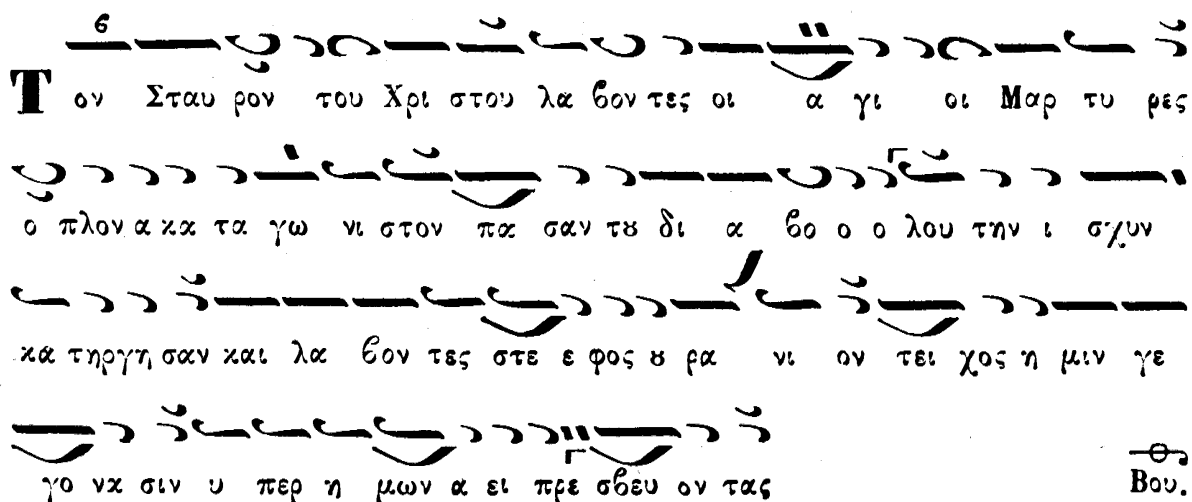 Τον Σταυ ρον του Χρι στου λα βον τες οι α γι οι Μαρ τυ ρες
ο πλον α κα τα γω νι στον πα σαν τȣ δι α βο ο ο λου την ι σχυν
κα τηργη σαν και λα βον τες στε ε φος ȣ ρα νι ον τει χος η μιν γε
γο να σιν υ περ η μων α ει πρε σβευ ον τας Βου.